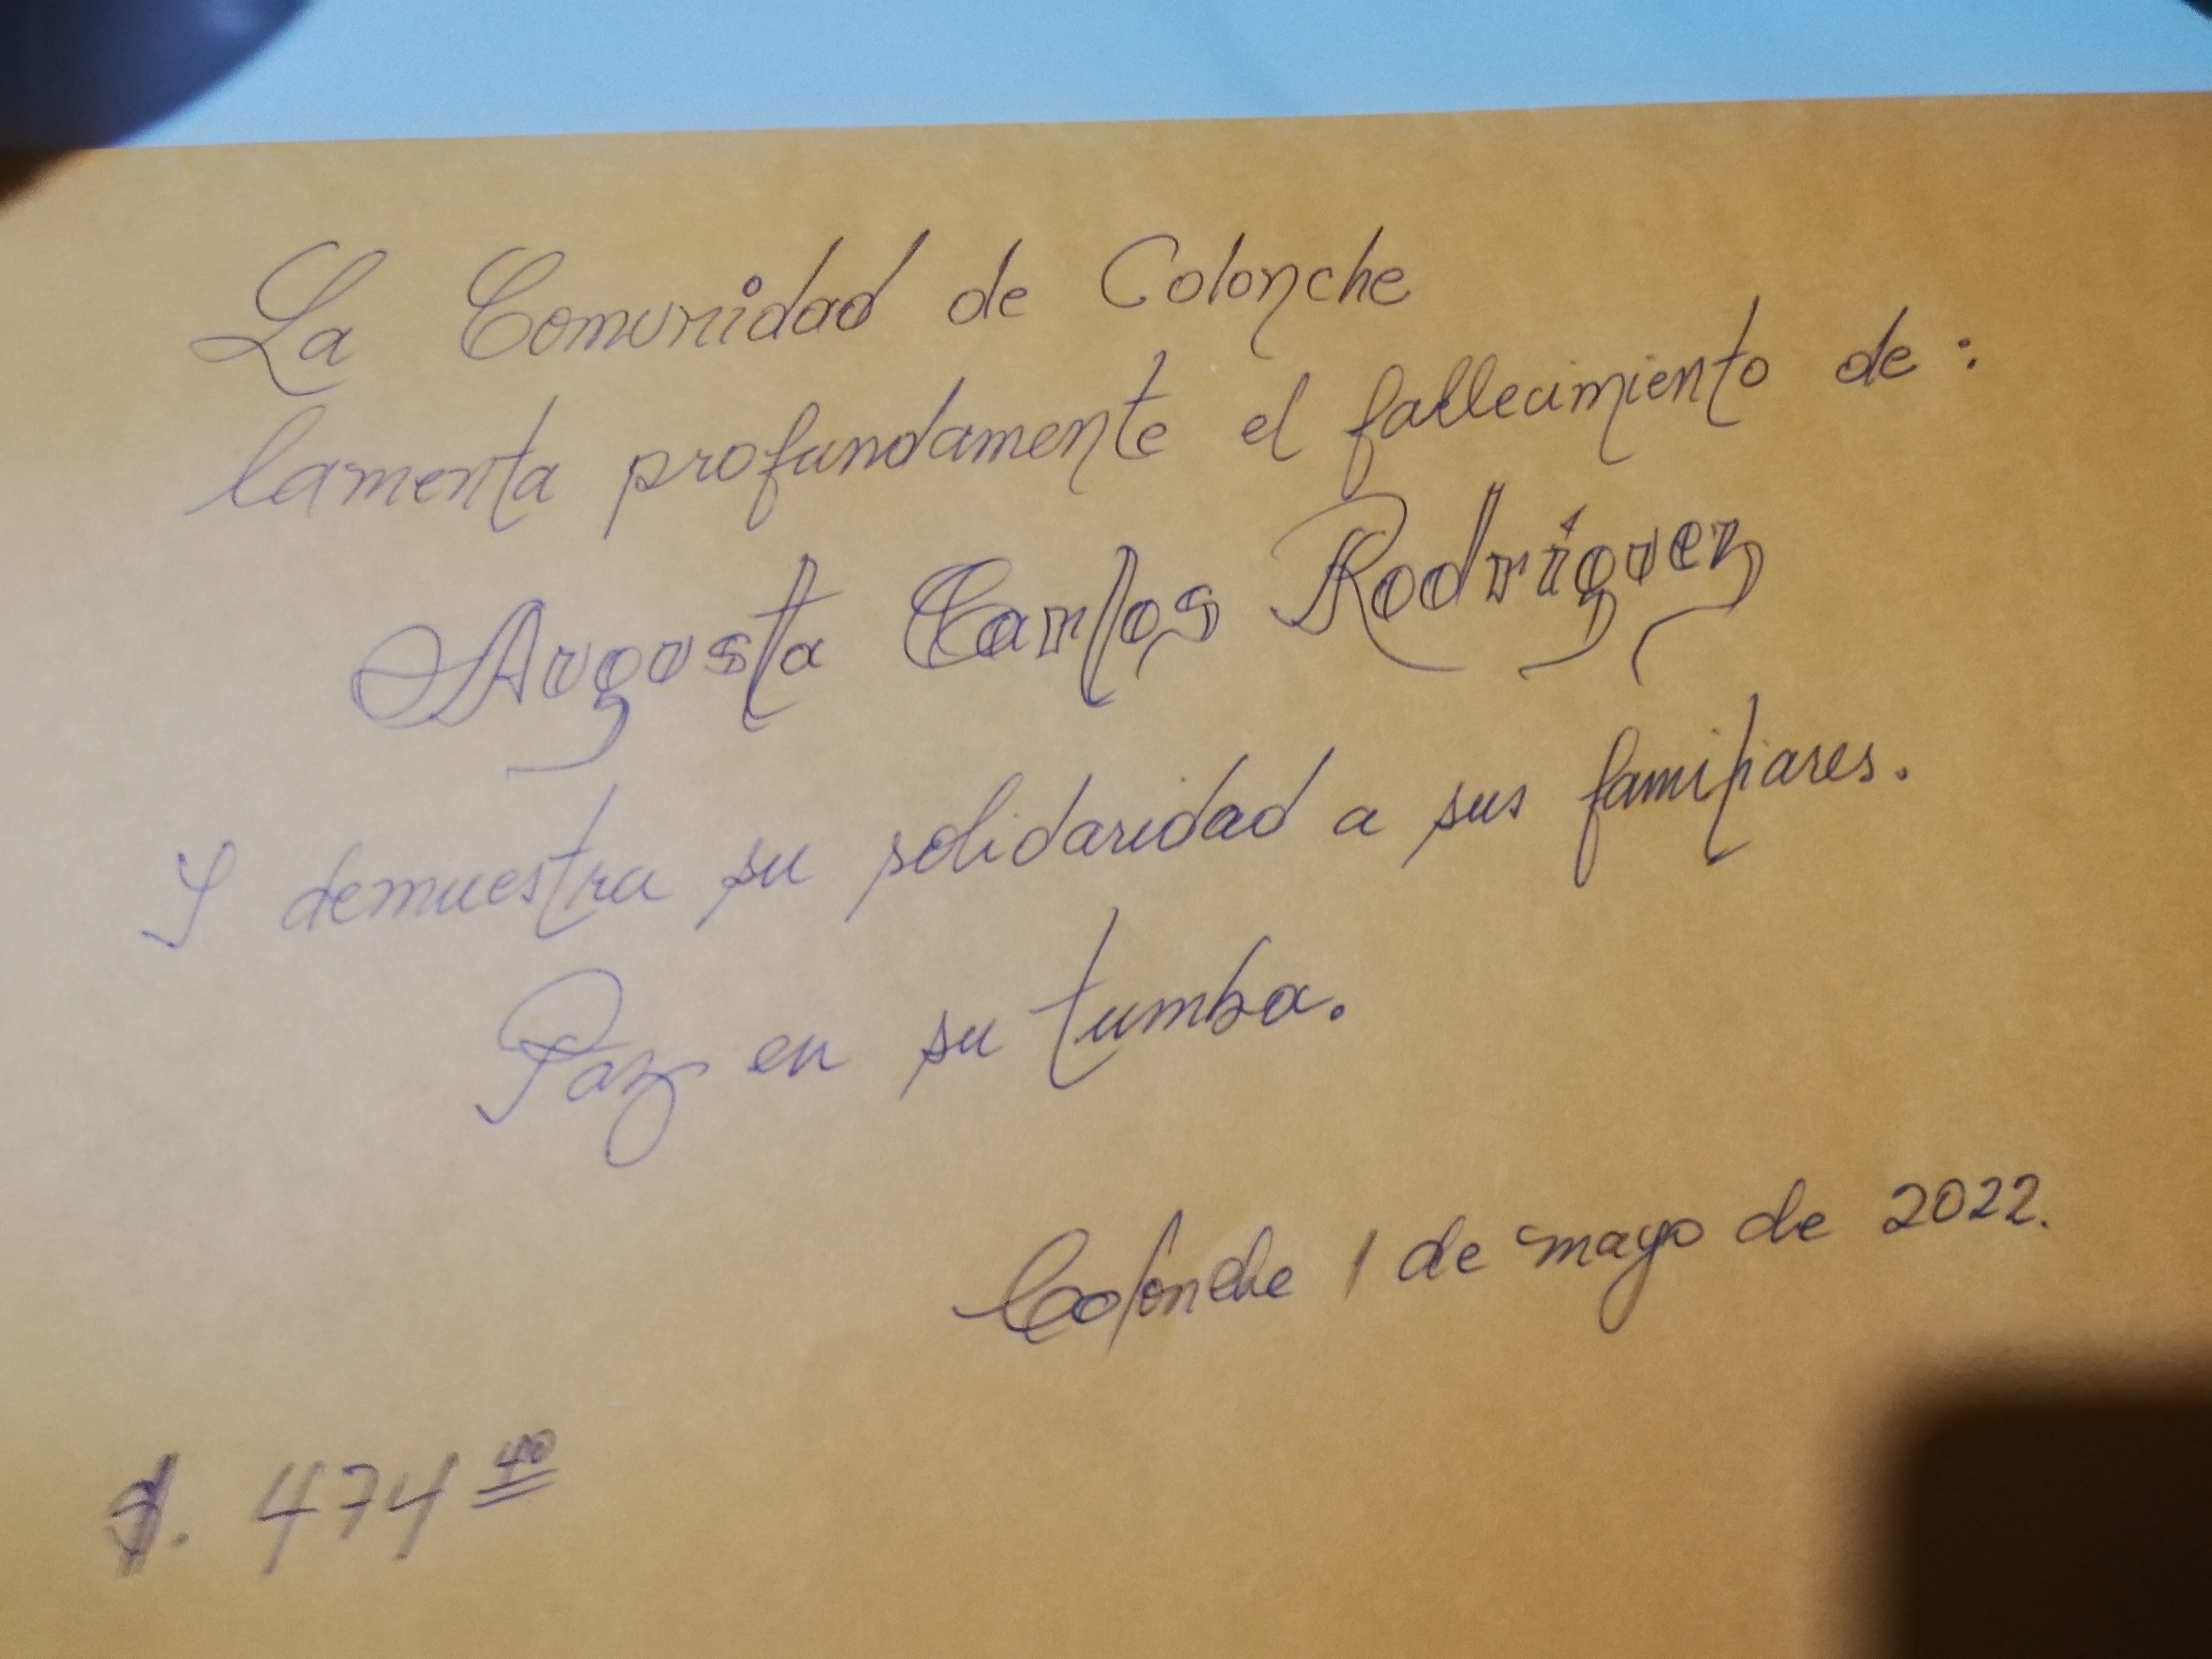 La Comunidad de Colonche
lamenta profundamente el fallecimiento de:
Augusta Carlos Rodríguez
Y demuestra su solidaridad a sus familiares.
Paz en su tumba.
Colonche 1 de mayo de 2022.
$. 474 40